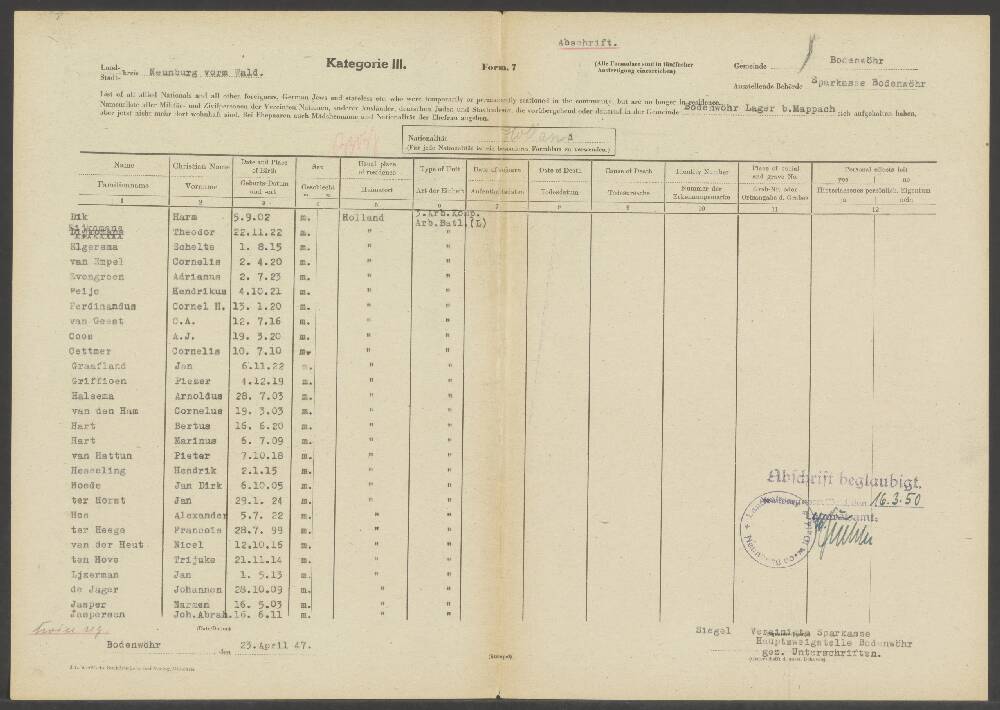 Abschrift.
Land-
Stadt-
kreis Neunburg vorm Wald.
Kategorie III.
Form. 7
(Alle Formulare sind in fünffacher
Ausfertigung einzureichen)
Gemeinde Bodenwöhr
Ausstellende Behörde Sparkasse Bodenwöhr
List of all allied Nationals and all other foreigners, German Jews and stateless etc. who were temporarily or permanently stationed in the community, but are no longer in residence.
Namensliste aller Militär- und Zivilpersonen der Vereinten Nationen, anderer Ausländer, deutschen Juden und Staatenlosen, die vorübergehend oder dauernd in der Gemeinde Bodenwöhr Lager b.Mappach sich aufgehalten haben,
aber jetzt nicht mehr dort wohnhaft sind. Bei Ehepaaren auch Mädchenname und Nationalität der Ehefrau angeben.
Nationalität Holland
(Für jede Nationalität ist ein besonderes Formblatt zu verwenden.)
Name Christian Name Date and Place of Birth Sex Usual place of residence Type of Unit Date of Death Cause of Death Identity Number Place of burial and grave No. Personal effects left yes no
Familienname Vorname Geburts-Datum und -ort Geschlecht Heimatort Art der Einheit Aufenthaltsdaten Todesdatum Todesursache Nummer der Erkennungsmarke Grab-Nr. oder Ortsangabe d. Grabes Hinterlassenes persönlich. Eigentum ja nein
1 2 3 4 5 6 7 8 9 10 11 12
Dik Harm 5.9.02 m. Holland 3.Arb.Komp. Arb.Batl.(L)
Dijkomans Theodor 22.11.22 m. " "
Elgersma Schelte 1. 8.15 m. " "
van Empel Cornelis 2. 4.20 m. " "
Evengroen Adrianus 2. 7.23 m. " "
Feijc Hendrikus 4.10.21 m. " "
Ferdinandus Cornel H. 13. 1.20 m. " "
van Geest C.A. 12. 7.16 m. " "
Coos A.J. 19. 3.20 m. " "
Oettmer Cornelis 10. 7.10 m. " "
Graafland Jan 6.11.22 m. " "
Griffioen Piezer 4.12.19 m. " "
Halsema Arnoldus 28. 7.03 m. " "
van den Ham Cornelus 19. 3.03 m. " "
Hart Bertus 16. 6.20 m. " "
Hart Marinus 6. 7.09 m. " "
van Hattun Pieter 7.10.18 m. " "
Hesseling Hendrik 2.1.15 m. " "
Hoede Jan Dirk 6.10.05 m. " "
ter Horst Jan 29.1. 24 m. " "
Hos Alexander 5.7. 22 m. " "
ter Heege Francois 28.7. 99 m. " "
van der Heut Nicel 12.10.16 m. " "
ten Hove Trijuke 21.11.14 m. " "
Ijzerman Jan 1. 5.13 m. " "
de Jager Johannen 28.10.09 m. " "
Jasper Harmen 16. 5.03 m. " "
Jaspersen Joh.Abrah. 16. 6.11 m. " "
Abschrift beglaubigt.
16.3.50
(Date/Datum)
Bodenwöhr den 23.April 47.
(Stempel)
Siegel Vereinigte Sparkasse
Hauptzweigstelle Bodenwöhr
gez. Unterschriften.